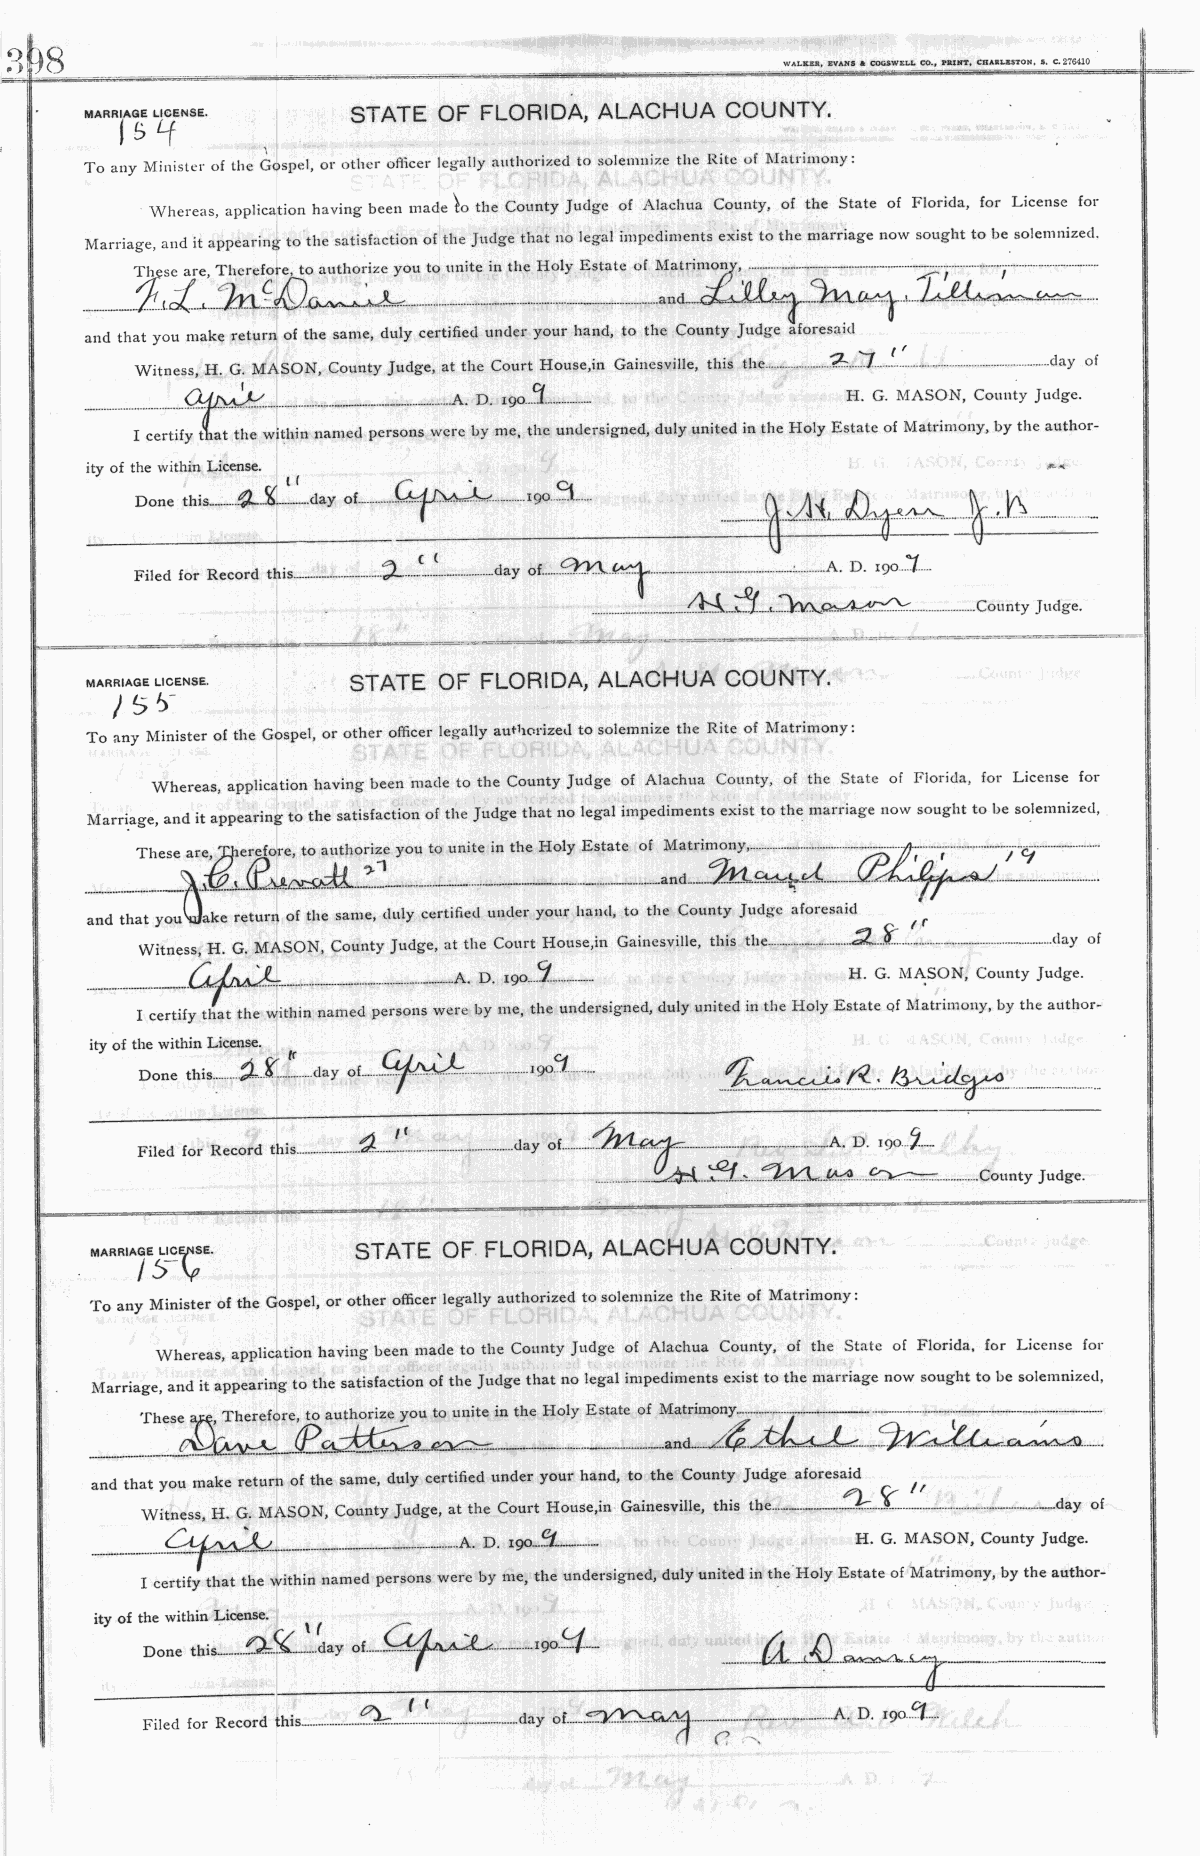 398
WALKER, EVANS & COGSWELL CO., PRINT, CHARLESTON, S. C. 276410
MARRIAGE LICENSE. STATE OF FLORIDA, ALACHUA COUNTY.
154
To any Minister of the Gospel, or other officer legally authorized to solemnize the Rite of Matrimony:
Whereas, application having been made to the County Judge of Alachua County, of the State of Florida, for License for
Marriage, and it appearing to the satisfaction of the Judge that no legal impediments exist to the marriage now sought to be solemnized.
These are, Therefore, to authorize you to unite in the Holy Estate of Matrimony,
F. L. McDaniel and Lilley May. Tilliman
and that you make return of the same, duly certified under your hand, to the County Judge aforesaid
Witness, H. G. MASON, County Judge, at the Court House, in Gainesville, this the 27" day of
April A. D. 1909 H. G. MASON, County Judge.
I certify that the within named persons were by me, the undersigned, duly united in the Holy Estate of Matrimony, by the author-
ity of the within License.
Done this 28" day of April 1909
J. H. Dyess J. P
Filed for Record this 2" day of May A. D. 1909
H. G. Mason County Judge.
MARRIAGE LICENSE. STATE OF FLORIDA, ALACHUA COUNTY.
155
To any Minister of the Gospel, or other officer legally authorized to solemnize the Rite of Matrimony:
Whereas, application having been made to the County Judge of Alachua County, of the State of Florida, for License for
Marriage, and it appearing to the satisfaction of the Judge that no legal impediments exist to the marriage now sought to be solemnized,
These are, Therefore, to authorize you to unite in the Holy Estate of Matrimony,
J. C. Prevatt 27 and Maud Philips 19
and that you make return of the same, duly certified under your hand, to the County Judge aforesaid
Witness, H. G. MASON, County Judge, at the Court House, in Gainesville, this the 28" day of
April A. D. 1909 H. G. MASON, County Judge.
I certify that the within named persons were by me, the undersigned, duly united in the Holy Estate of Matrimony, by the author-
ity of the within License.
Done this 28" day of April 1909 Francies R. Bridges
Filed for Record this 2" day of May A. D. 1909
H. G. Mason County Judge.
MARRIAGE LICENSE. STATE OF FLORIDA, ALACHUA COUNTY.
156
To any Minister of the Gospel, or other officer legally authorized to solemnize the Rite of Matrimony:
Whereas, application having been made to the County Judge of Alachua County, of the State of Florida, for License for
Marriage, and it appearing to the satisfaction of the Judge that no legal impediments exist to the marriage now sought to be solemnized,
These are, Therefore, to authorize you to unite in the Holy Estate of Matrimony
Dave Patterson and Ethel Williams
and that you make return of the same, duly certified under your hand, to the County Judge aforesaid
Witness, H. G. MASON, County Judge, at the Court House, in Gainesville, this the 28" day of
April A. D. 1909 H. G. MASON, County Judge.
I certify that the within named persons were by me, the undersigned, duly united in the Holy Estate of Matrimony, by the author-
ity of the within License.
Done this 28" day of April 1909 A
Filed for Record this 2" day of May A. D. 1909